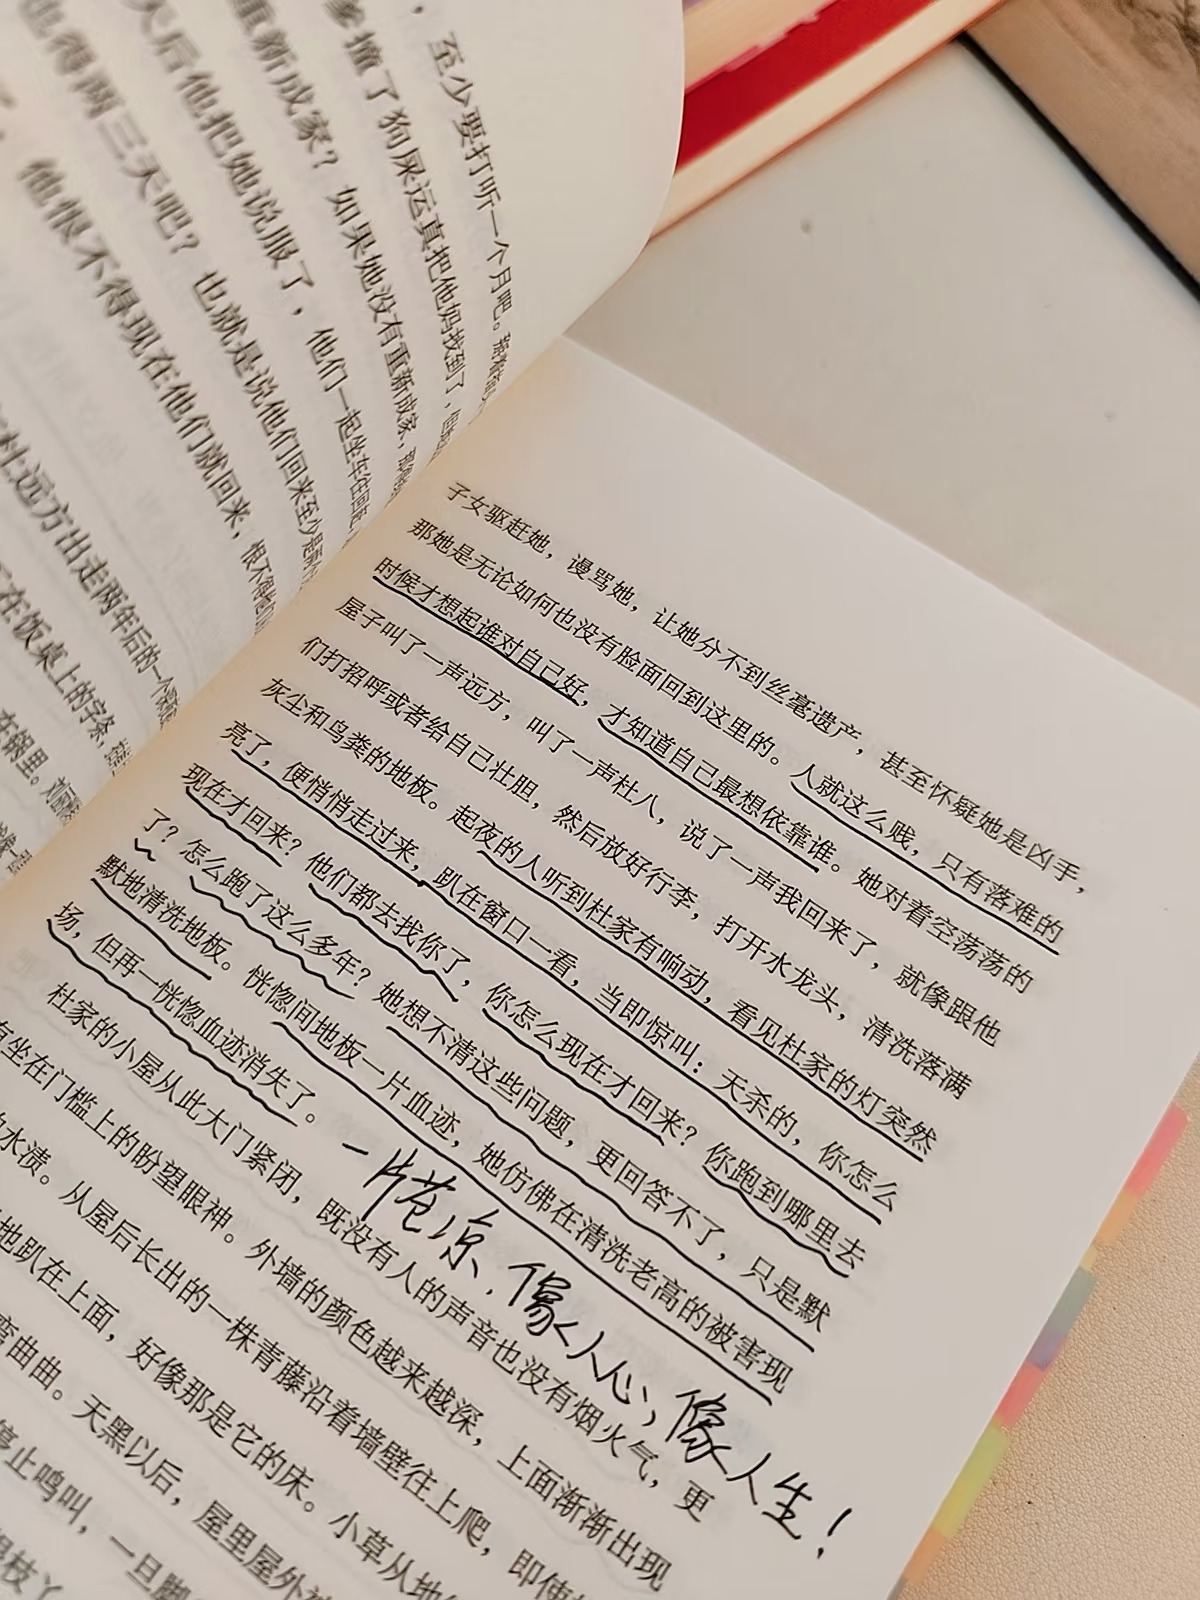 ，至少要打听一个月吧。
撞了狗屎运真把他妈找到了，
重新成家？如果她没有重新成家，
天后他把她说服了，他们一起坐车往回赶，
也得两三天吧？也就是说他们回来至少是
他恨不得现在他们就回来，恨不得他们
杜远方出走两年后的一个
在饭桌上的字条，
在锅里。
子女驱赶她，谩骂她，让她分不到丝毫遗产，甚至怀疑她是凶手，
那她是无论如何也没有脸面回到这里的。人就这么贱，只有落难的
时候才想起谁对自己好，才知道自己最想依靠谁。她对着空荡荡的
屋子叫了一声远方，叫了一声杜八，说了一声我回来了，就像跟他
们打招呼或者给自己壮胆，然后放好行李，打开水龙头，清洗落满
灰尘和鸟粪的地板。起夜的人听到杜家有响动，看见杜家的灯突然
亮了，便悄悄走过来，趴在窗口一看，当即惊叫：天杀的，你怎么
现在才回来？他们都去找你了，你怎么现在才回来？你跑到哪里去
了？怎么跑了这么多年？她想不清这些问题，更回答不了，只是默
默地清洗地板。恍惚间地板一片血迹，她仿佛在清洗老高的被害现
场，但再一恍惚血迹消失了。
一片苍凉，像人心，像人生！
杜家的小屋从此大门紧闭，既没有人的声音也没有烟火气，更
有坐在门槛上的盼望眼神。外墙的颜色越来越深，上面渐渐出现
水渍。从屋后长出的一株青藤沿着墙壁往上爬，即使
地趴在上面，好像那是它的床。小草从地
弯曲曲。天黑以后，屋里屋外
停止鸣叫，一旦脚
枝丫